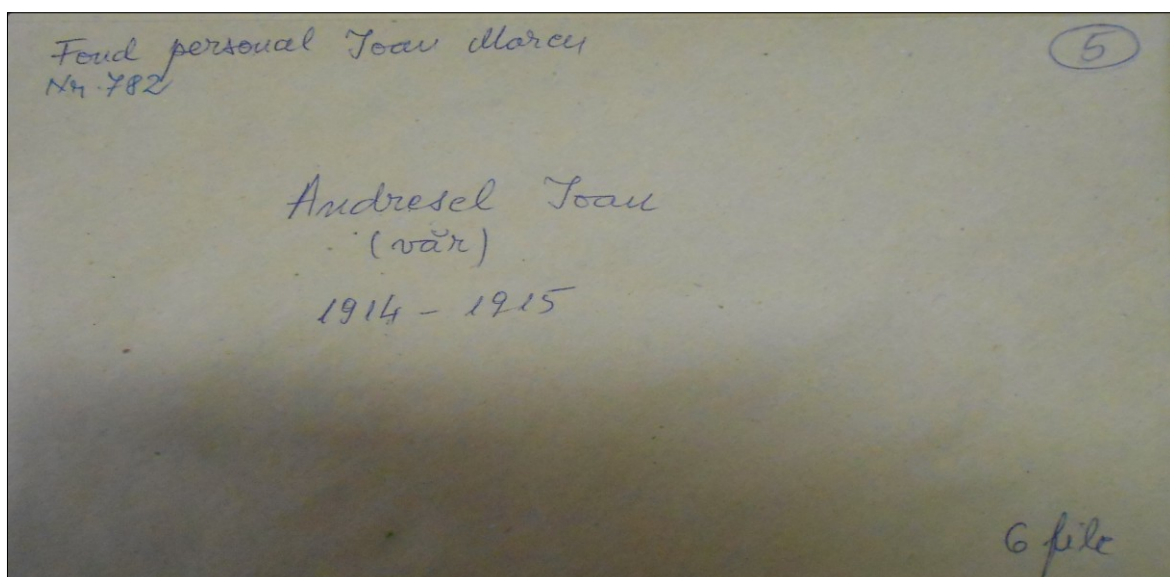 Fond personal Ioan Marcu
5
Nr. 782
Andresel Ioan
(văr)
1914 - 1915
6 file